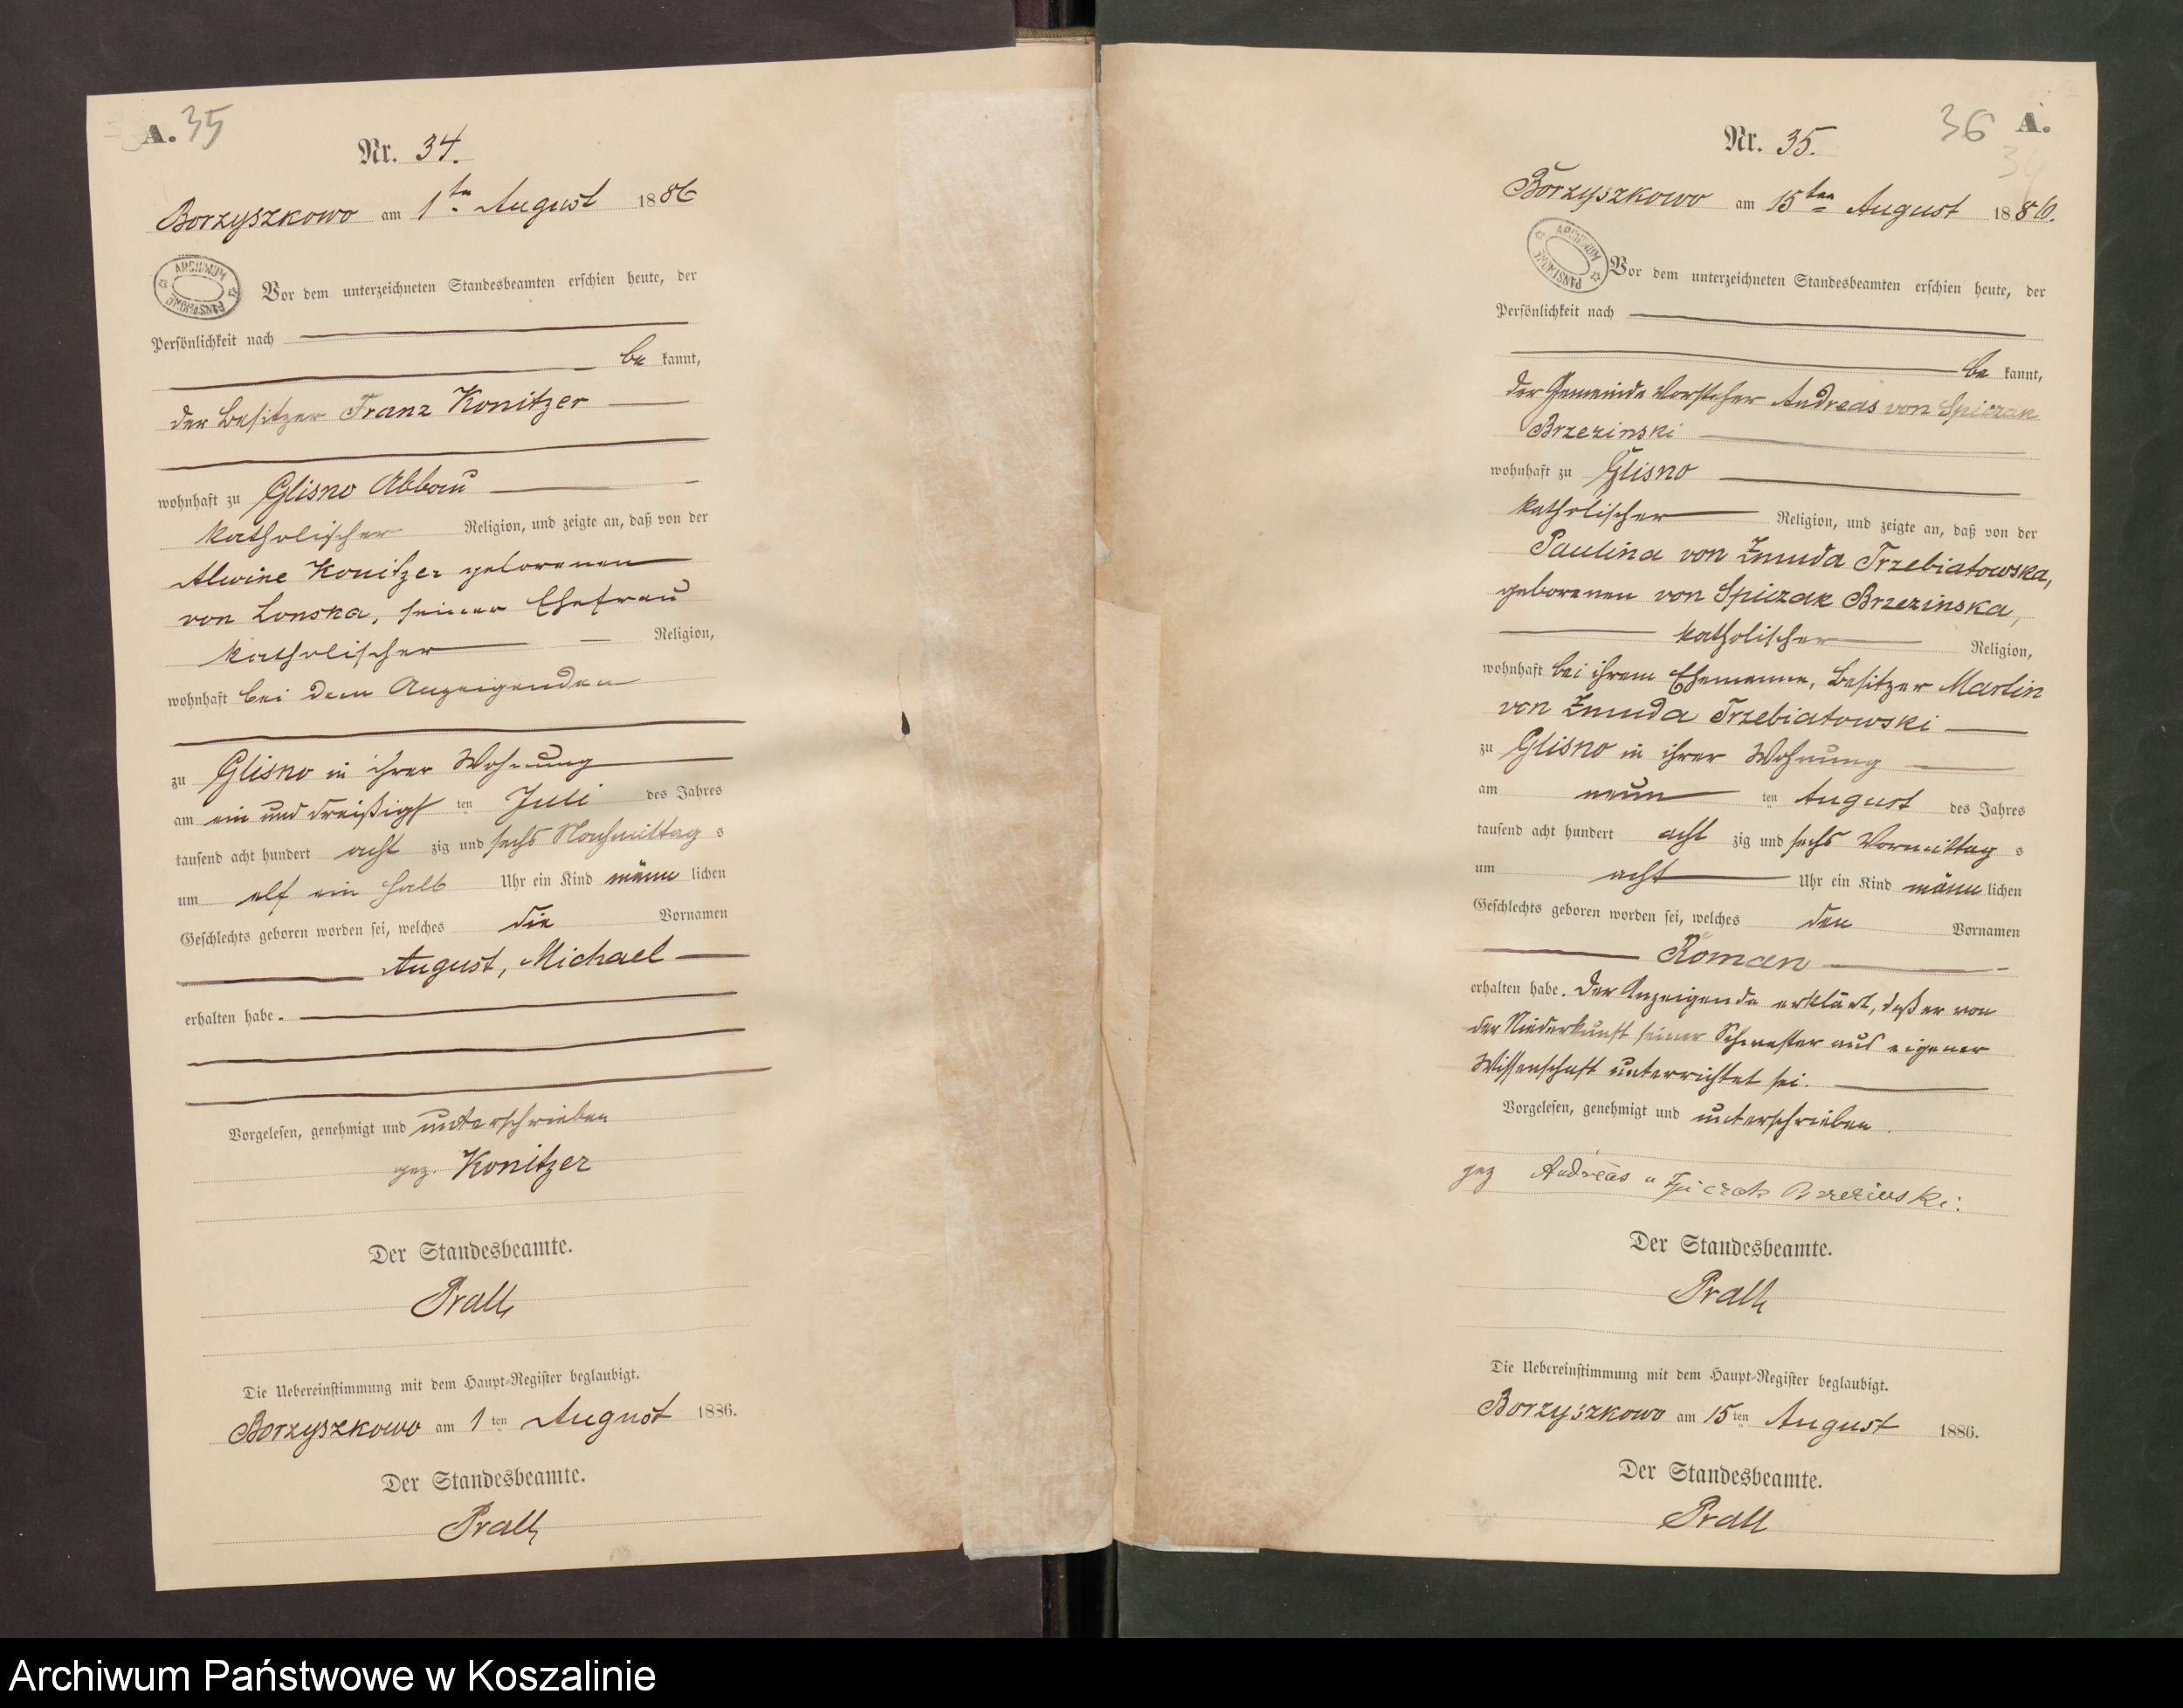 A. 35
Nr. 34.
Borzyszkowo am 1ten August 1886
ARCHIWUM PAŃSTWOWE
Vor dem unterzeichneten Standesbeamten erschien heute, der
Persönlichkeit nach
be kannt,
der Besitzer Franz Konitzer
wohnhaft zu Glisno Abbau
katholischer Religion, und zeigte an, daß von der
Alwine Konitzer geborenen
von Lonska, seiner Ehefrau
katholischer Religion,
wohnhaft bei dem Anzeigenden
zu Glisno in ihrer Wohnung
am ein und dreißigst ten Juli des Jahres
tausend acht hundert acht zig und sechs Nachmittag s
um elf ein halb Uhr ein Kind männ lichen
Geschlechts geboren worden sei, welches die Vornamen
August, Michael
erhalten habe.
Vorgelesen, genehmigt und unterschrieben
gez. Konitzer
Der Standesbeamte.
Prall
Die Uebereinstimmung mit dem Haupt-Register beglaubigt.
Borzyszkowo am 1 ten August 1886.
Der Standesbeamte.
Prall
36 A.
Nr. 35.
Borzyszkowo am 15ten August 1886.
ARCHIWUM PAŃSTWOWE
Vor dem unterzeichneten Standesbeamten erschien heute, der
Persönlichkeit nach
be kannt,
der Gemeinde Vorsteher Andreas von Spiczak
Brzezinski
wohnhaft zu Glisno
katholischer Religion, und zeigte an, daß von der
Paulina von Zmuda Trzebiatowska,
geborenen von Spiczak Brzezinska,
katholischer Religion,
wohnhaft bei ihrem Ehemanne, Besitzer Martin
von Zmuda Trzebiatowski
zu Glisno in ihrer Wohnung
am neun ten August des Jahres
tausend acht hundert acht zig und sechs Vormittag s
um acht Uhr ein Kind männ lichen
Geschlechts geboren worden sei, welches den Vornamen
Roman
erhalten habe. Der Anzeigende erklärt, daß er von
der Niederkunft seiner Schwester aus eigener
Wissenschaft unterrichtet sei.
Vorgelesen, genehmigt und unterschrieben.
gez Andreas v Spiczak Brzezinski.
Der Standesbeamte.
Prall
Die Uebereinstimmung mit dem Haupt-Register beglaubigt.
Borzyszkowo am 15 ten August 1886.
Der Standesbeamte.
Prall
Archiwum Państwowe w Koszalinie